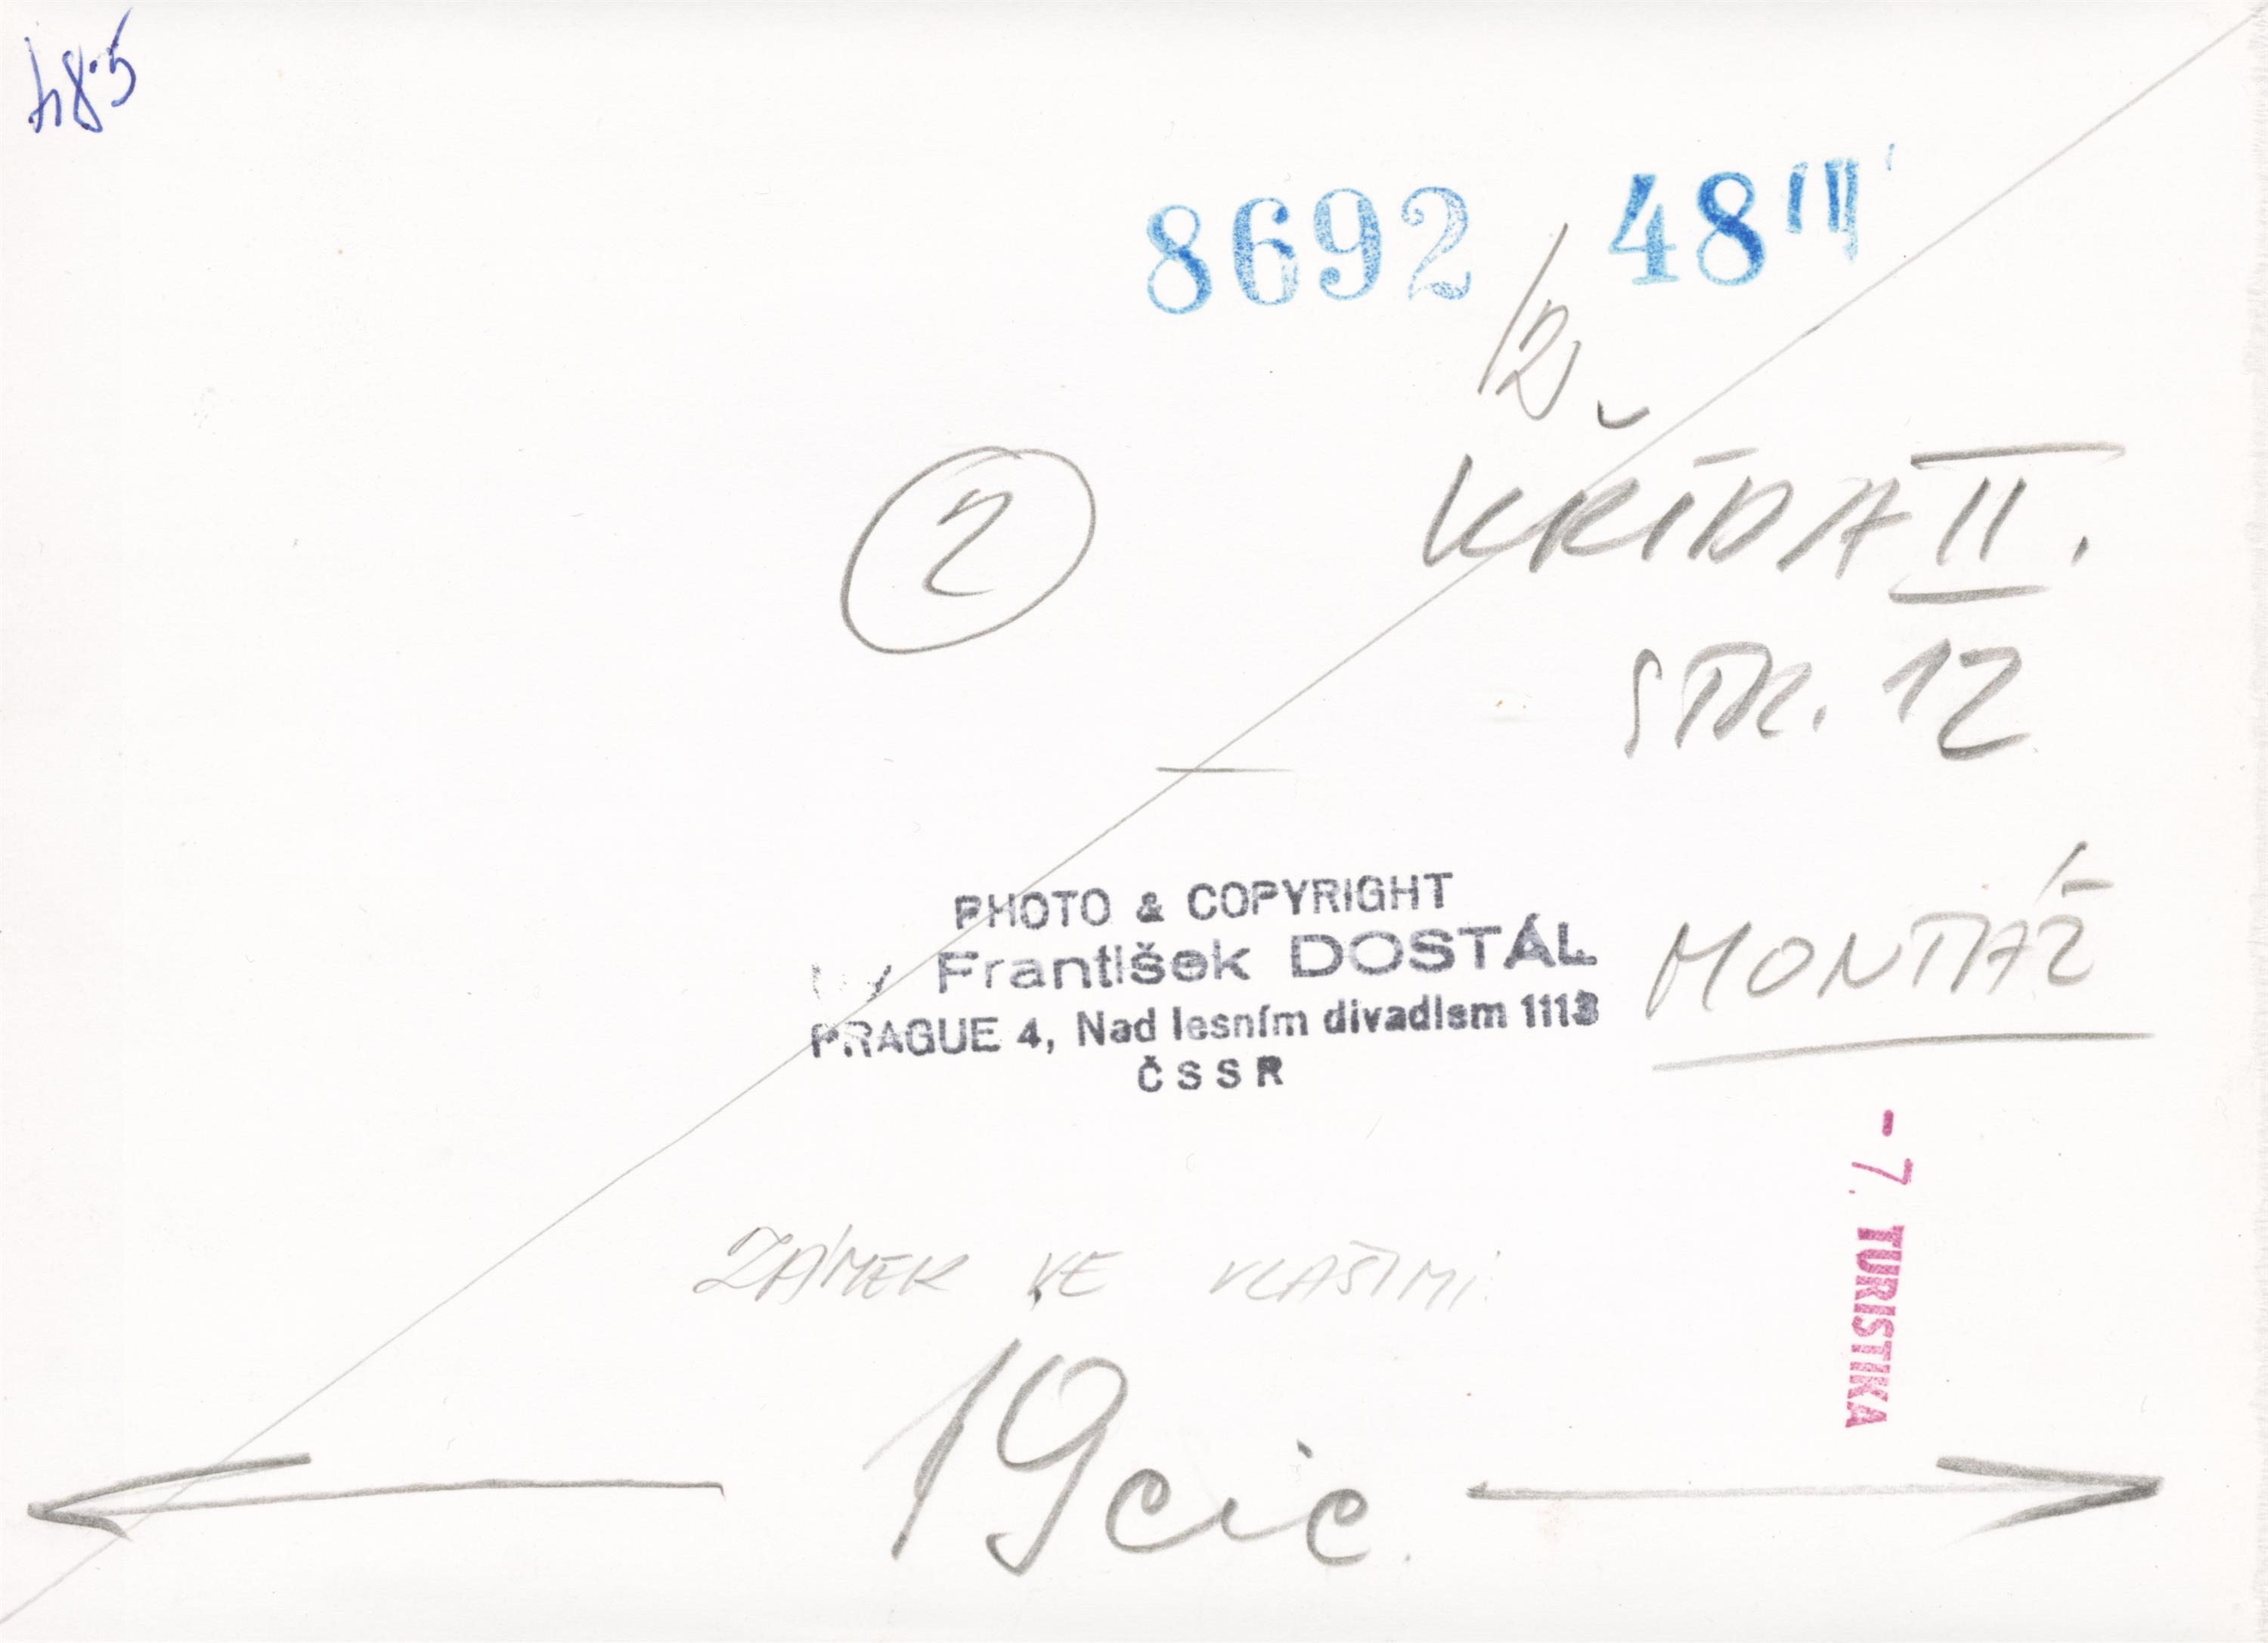 8692 48
/2
2
KŘÍDA II.
STR. 12
PHOTO & COPYRIGHT
František DOSTÁL
PRAGUE 4, Nad lesním divadlem 1113
ČSSR
MONTÁŽ
- 7. TURISTIKA
ZÁMEK VE VLAŠIMI
19 cic.